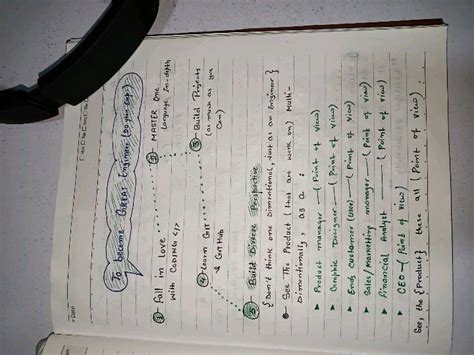 To become GREAT Engineer
① Fall in love
with CODING </>
② MASTER One
Language In-depth
③ Build Projects
(as much as you
can)
④ Learn GIT
& GitHub
⑤ Build Diverse Perspective
{ Don't think one Dimentional, Just as an Engineer }
See The Product ( that are work on) Multi-
Dimentionally, as a :
▸ Product manager —( Point of View)
▸ Graphic Designer —( Point of View)
▸ End Customer (User) —( Point of View)
▸ Sales/Marketting manager —( Point of View)
▸ Financial Analyst —( Point of View)
▸ CEO —( Point of View)
See, the {Product} these all (Point of View) .